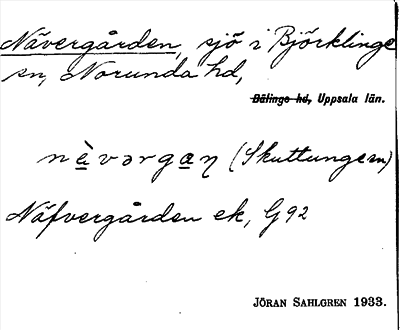 Nävergården, sjö i Björklinge
sn, Norunda hd,
Bälinge hd, Uppsala län.
nàvərgaɳ (Skuttunge sn)
Näfvergården ek, G 92
JÖRAN SAHLGREN 1933.